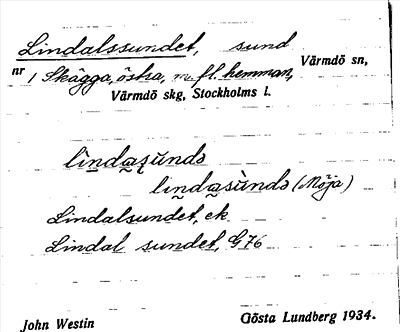 Lindalssundet, sund
nr 1 Skägga, östra, m. fl. hemman, Värmdö sn,
Värmdö skg, Stockholms l.
lìndaʂúndə
lindasùndə (Möja)
Lindalsundet, ek
Lindal sundet, G76
John Westin Gösta Lundberg 1934.